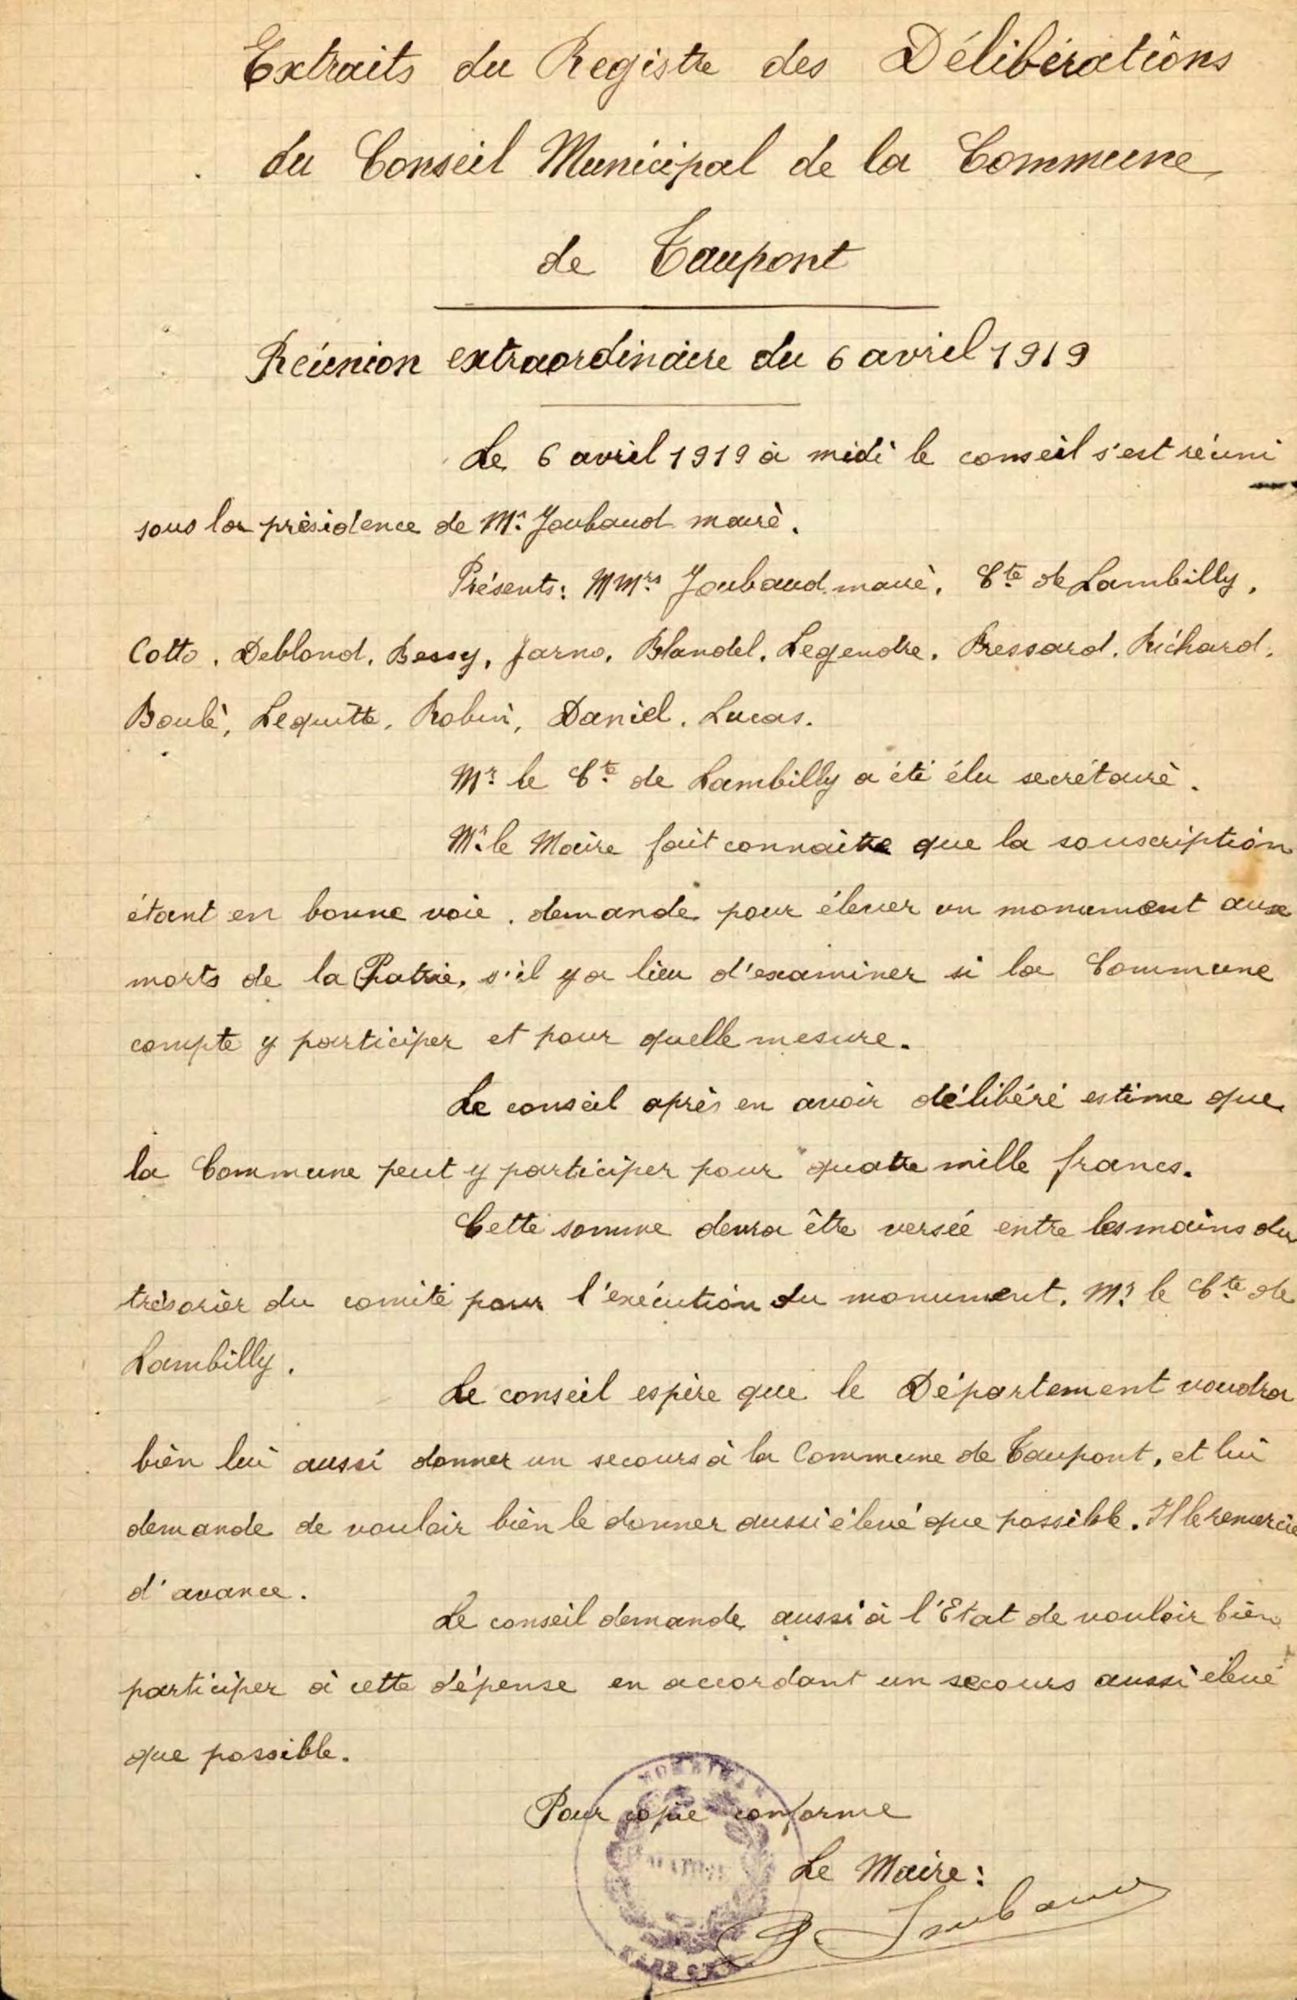 Extraits du Registre des Délibérations
du Conseil Municipal de la Commune
de Taupont
Réunion extraordinaire du 6 avril 1919
Le 6 avril 1919 à midi le conseil s'est réuni
sous la présidence de Mr Joubaud maire.
Présents : MMrs Joubaud maire, Cte de Lambilly,
Cotto, Deblond, Bessy, Jarno, Blandel, Legendre, Pressard, Richard,
Boulé, Lequitte, Robin, Daniel, Lucas.
Mr le Cte de Lambilly a été élu secrétaire.
Mr le Maire fait connaitre que la souscription
étant en bonne voie, demande pour élever un monument aux
morts de la Patrie, s'il y a lieu d'examiner si la Commune
compte y participer et pour quelle mesure.
Le conseil après en avoir délibéré estime que
la Commune peut y participer pour quatre mille francs.
Cette somme devra être versée entre les mains du
trésorier du comité pour l'exécution du monument, Mr le Cte de
Lambilly.
Le conseil espère que le Département voudra
bien lui aussi donner un secours à la Commune de Taupont, et lui
demande de vouloir bien le donner aussi élevé que possible. Il le remercie
d'avance.
Le conseil demande aussi à l'Etat de vouloir bien
participer à cette dépense en accordant un secours aussi élevé
que possible.
MORBIHAN
Pour copie conforme
MAIRIE
Le Maire :
P. Joubaud
TAUPONT